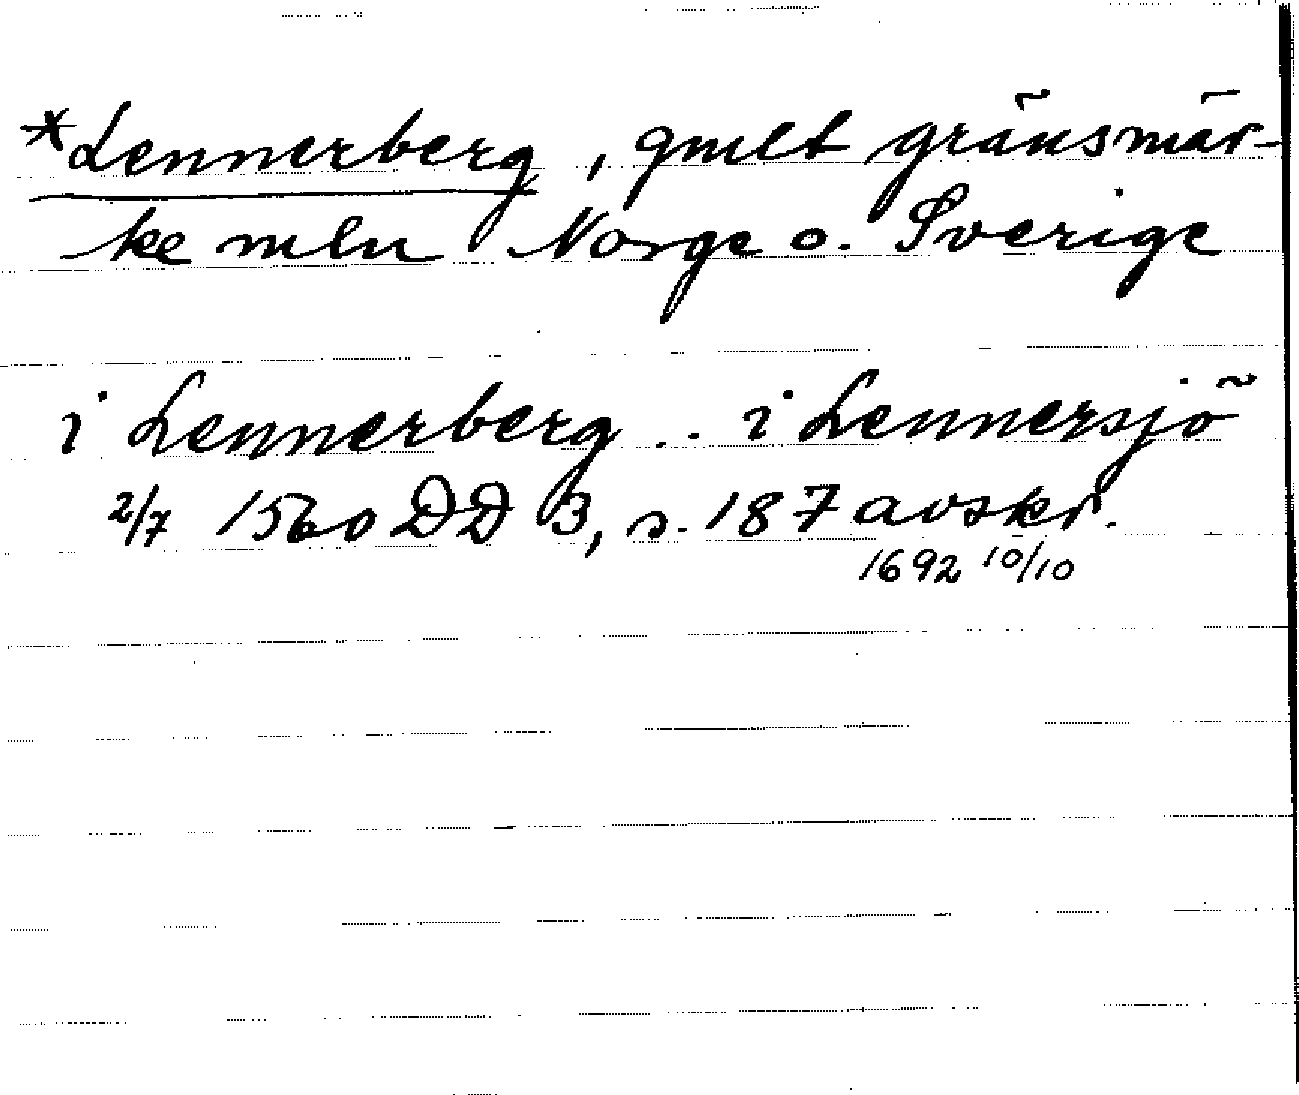 *Lennerberg, gmlt gränsmär-
ke mln Norge o. Sverige
i Lennerberg .. i Lennersjö
2/7 1560 DD 3, s. 187 avskr.
1692 10/10